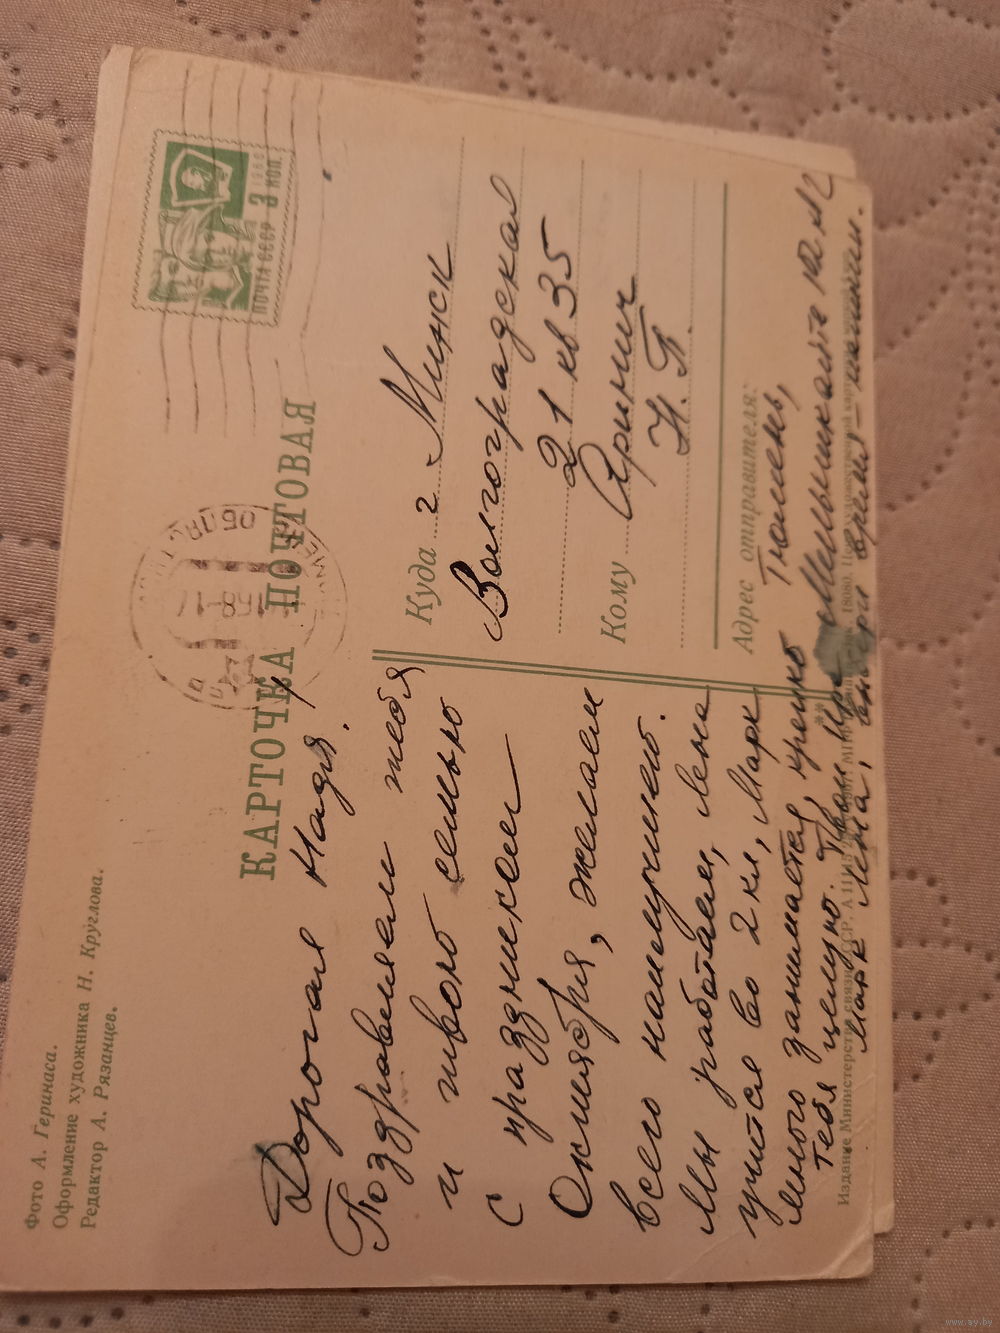 Фото А. Геринаса.
Оформление художника Н. Круглова.
Редактор А. Рязанцев.
ПОЧТА СССР 3 КОП.
1966
КАРТОЧКА ПОЧТОВАЯ
Дорогая Надя!
Поздравляем тебя
и твою семью
с праздником
Октября, желаем
всего наилучшего.
Мы работаем, Лена
учится во 2 кл, Марк
много занимается, крепко
тебя целую. Твои
Марк Лена,
Куда г Минск
Волоградская
21 кв 35
Кому
Н. П.
Адрес отправителя:
Тюмень,
Мельникайте
Издание Министерства связи СССР.
www.ay.by